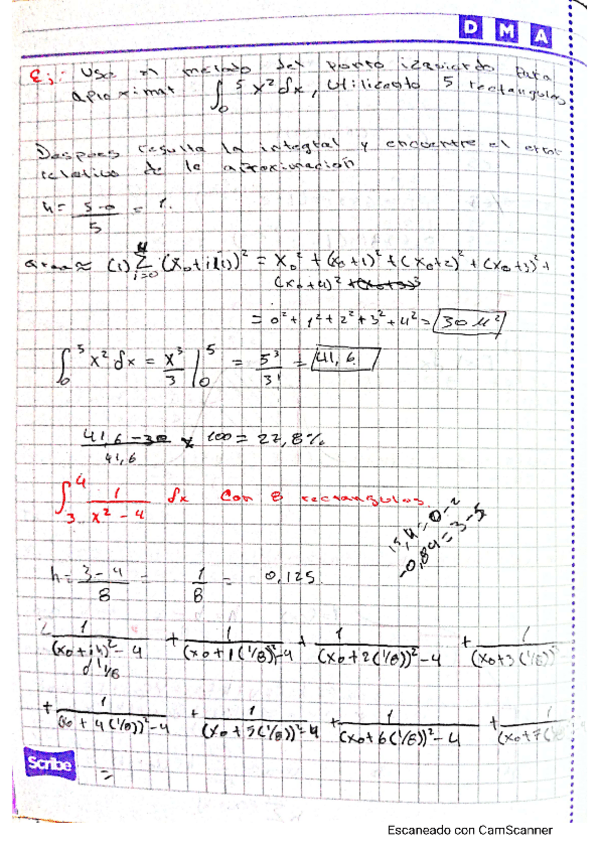 D M A
Ej: Use el metodo del punto izquierdo para
aproximar ∫₀⁵ x² dx, utilizando 5 rectangulos
Despues resuelva la integral y encuentre el error
relativo de la aproximacion
h = (5-0)/5 = 1.
area ≈ (1) Σ_{i=0}^{4} (x₀+i(1))² = x₀² + (x₀+1)² + (x₀+2)² + (x₀+3)² +
(x₀+4)²
= 0² + 1² + 2² + 3² + 4² = 30 u²
∫₀⁵ x² dx = x³/3 |₀⁵ = 5³/3 = 41,6
(41,6-30)/41,6 × 100 = 27,8%
∫₃⁴ 1/(x²-4) dx con 8 rectangulos.
15,4=0-2
-0,84=3-5
h = (3-4)/8 = 1/8 = 0,125
1/((x₀+ih)²-4) + 1/((x₀+1(1/8))²-4) + 1/((x₀+2(1/8))²-4) + 1/((x₀+3(1/8))²
0 1/8
+ 1/((x₀+4(1/8))²-4) + 1/((x₀+5(1/8))²-4) + 1/((x₀+6(1/8))²-4) + 1/((x₀+7(1/8)
=
Scribe
Escaneado con CamScanner